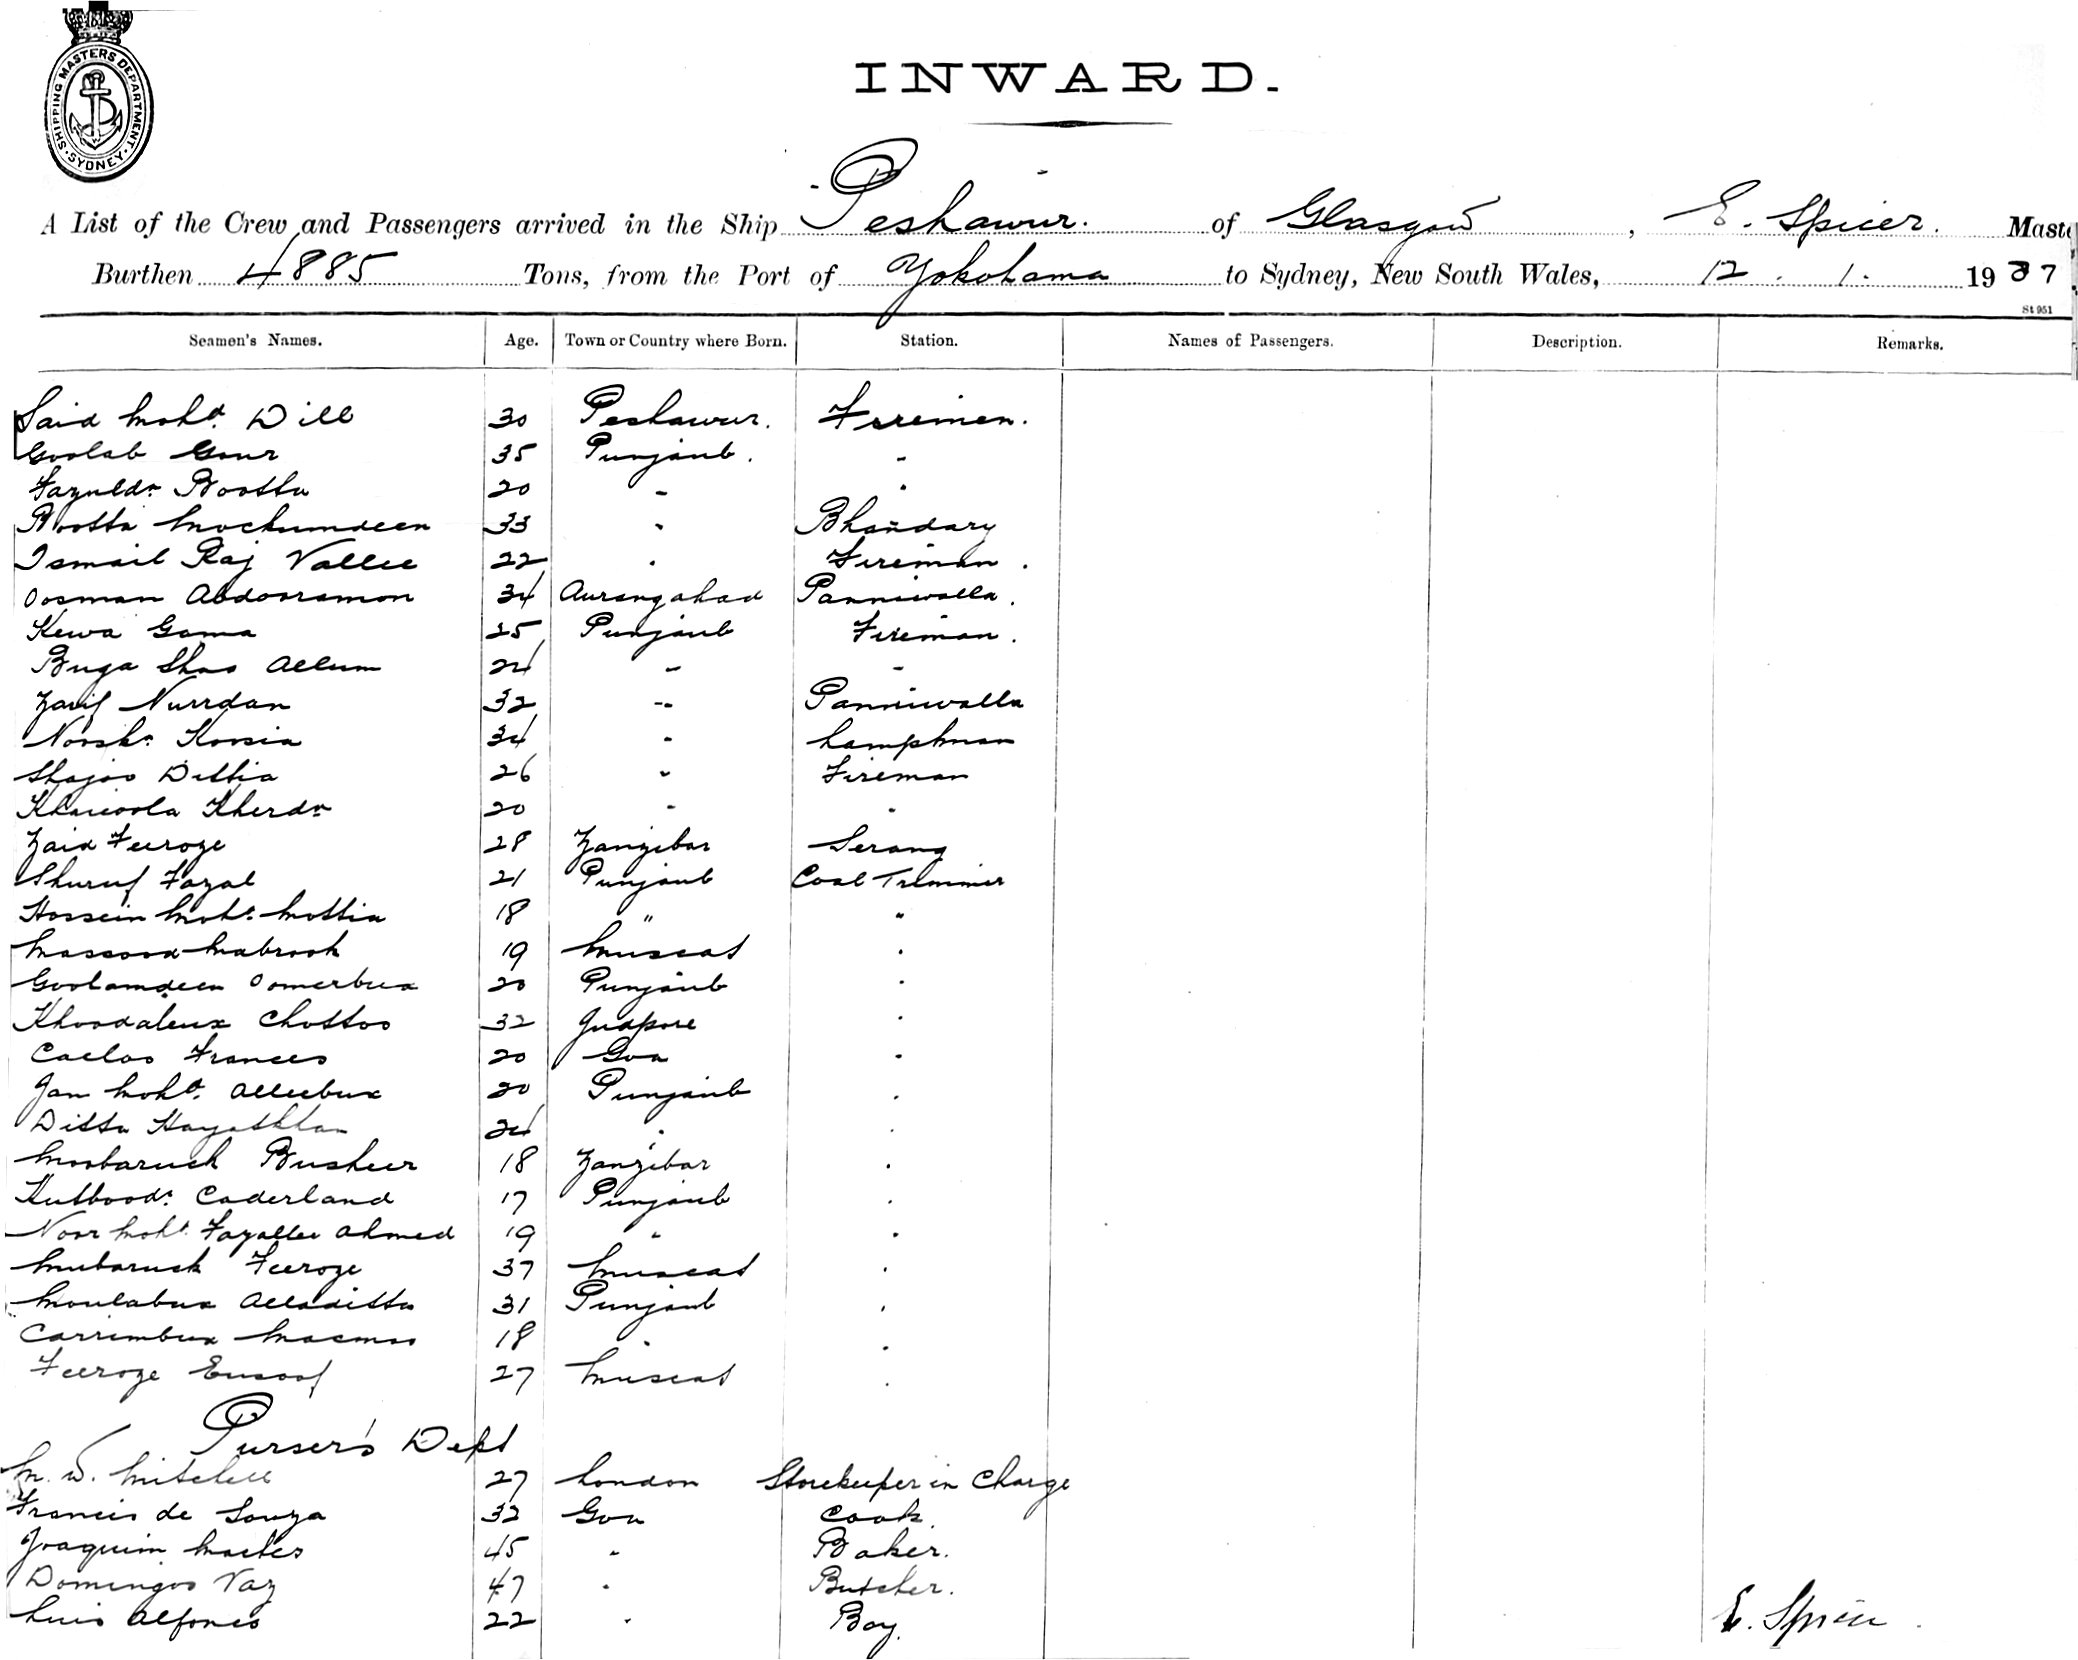 SHIPPING MASTERS DEPARTMENT · SYDNEY ·
INWARD.
A List of the Crew and Passengers arrived in the Ship Peshawur. of Glasgow, E. Spicer. Maste
Burthen 4885 Tons, from the Port of Yokohama to Sydney, New South Wales, 12 . 1 . 1937
St 951
Seamen's Names. Age. Town or Country where Born. Station. Names of Passengers. Description. Remarks.
Said Mohd. Dill 30 Peshawur. Firemen.
Goolab Gour 35 Punjaub. "
Fazuldn Bootta 20 " "
Bootta Mochumdeen 33 " Bhandary
Ismail Raj Vallee 22 " Fireman.
Oosman Abdooramon 34 Aurangabad Panniwalla.
Kewa Gama 25 Punjaub Fireman.
Buga Shas Allum 24 " "
Zarif Nurrdan 32 " Panniwalla
Noosk. Koosia 34 " Lampman
Shajoo Dittia 26 " Fireman
Kharoola Kherdn 20 " "
Zaid Feeroze 28 Zanzibar Serang
Shuruf Fazal 21 Punjaub Coal Trimmer
Hossein Moht. Mottia 18 " "
Massood Mabrook 19 Muscat "
Goolamdeen Oomerbux 20 Punjaub "
Khoodabux Chottoo 32 Judpore "
Caelao Frances 20 Goa "
Jan Moht. Alleebux 20 Punjaub "
Ditta Hayatkhan 24 " "
Moobaruck Busheer 18 Zanzibar "
Kutbood. Caderland 17 Punjaub "
Noor Moht. Fazallee Ahmed 19 " "
Mubaruck Feeroze 37 Muscat "
Moulabux Alladitta 31 Punjaub "
Carrimbux Macmoo 18 " "
Feeroze Eusoof 27 Muscat "
Purser's Dept
M. W. Mitchell 27 London Storekeeper in Charge
Francis de Souza 32 Goa Cook.
Joaquim Martes 45 " Baker.
Domingos Vaz 47 " Butcher.
Luis Alfonso 22 " Boy.
E. Spicer.